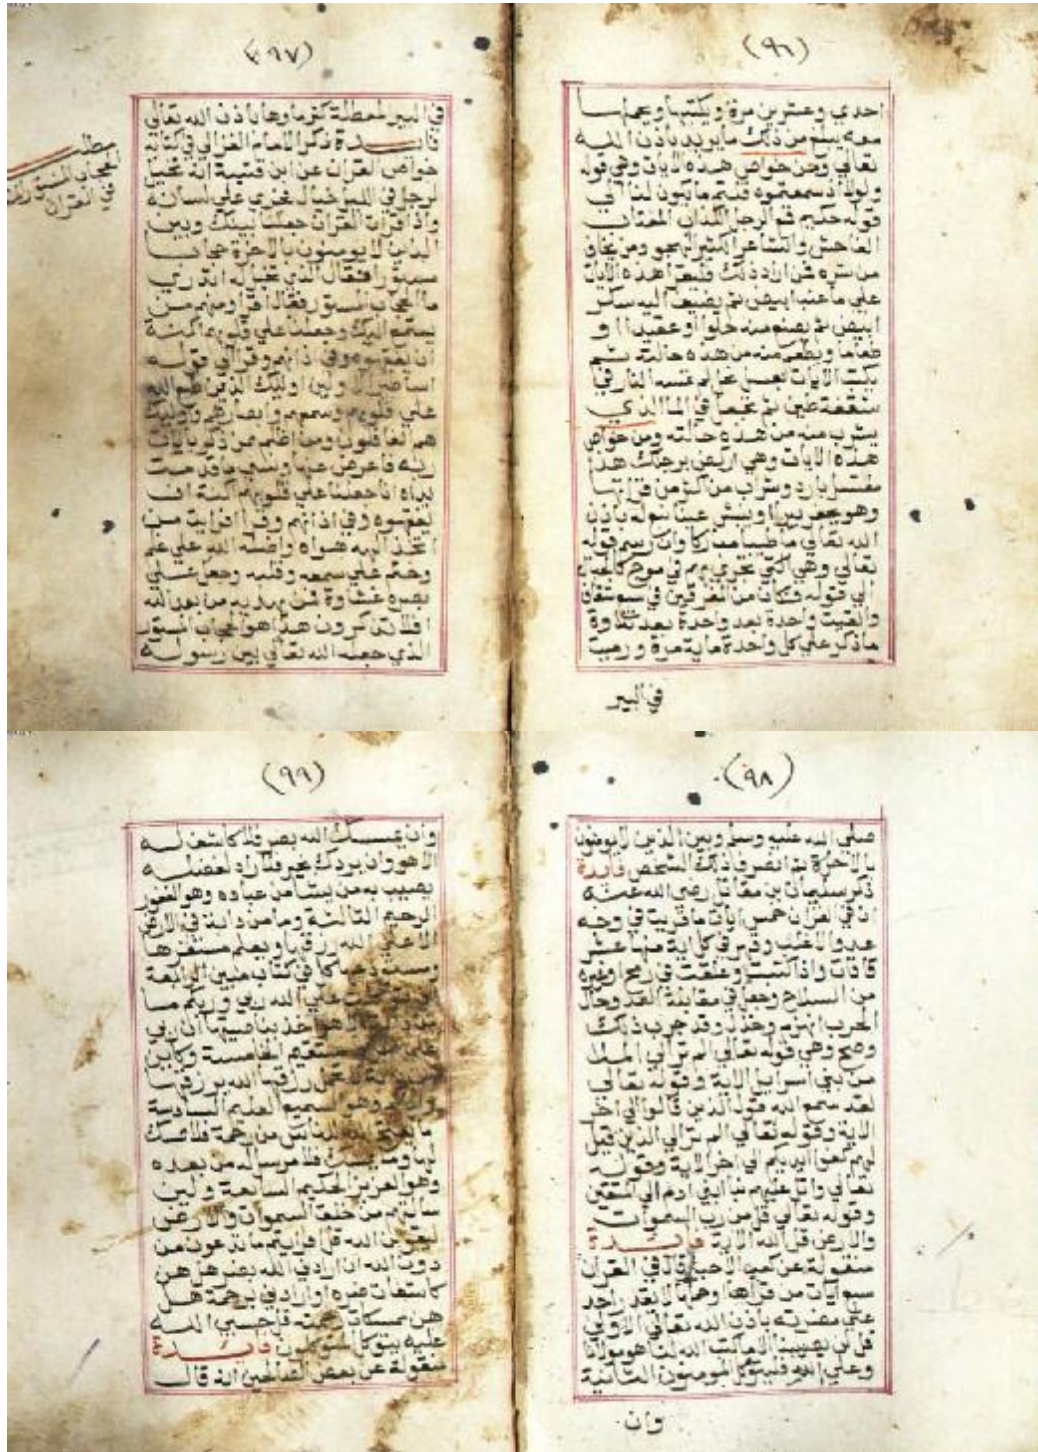 (٩٦)
احدي وعشرين مرة ويكتبها ويحملها
معه يبلغ من ذلك ما يريد باذن الله
تعالي ومن خواص هذه الايات وهي قوله
ولولا اذ سمعتموه قلتم ما يكون لنا الي
قوله حكيم فم الرجل اللذاب المغتاب
الفاحش والشاعر الكثير الهجو ومن يخاف
من شره فمن اراد ذلك فليقرا هذه الايات
علي ما عنب ابيض ثم يضيف اليه سكر
ابيض ثم يصنع منه حلوا او عقيدا او
طعاما ويطعم منه من هذه حالته ثم
يكتب الايات بعسل نحل لم تمسه النار في
شقفة طين ثم يجعل في الما الذي
يشرب منه من هذه حالته ومن خواص
هذه الايات وهي اركض برجلك هذا
مغتسل بارد وشراب من كثر من قراتها
وهو يحفر بيرا او ينبش عينا سهله باذن
الله تعالي ما طيبا مباركا وان رسم قوله
تعالي وهي التي تجري بهم في موج كالجبال
الي قوله فكان من المغرقين في سبع شقاف
والقيت واحدة بعد واحدة بعد تلاوة
ما ذكر علي كل واحدة ماية مرة ورميت
في البير
(٩٧)
في البير المعطلة كثر ماوها باذن الله تعالي
فايدة ذكر الامام الغزالي في كتابه
خواص القران عن ابن قتيبة انه تخيل
لرجل في الليل خيال فجري علي لسانه
واذا قرات القران جعلنا بينك وبين
الذين لا يومنون بالاخرة حجابا
مستورا فقال الذي تخيل له اتدري
ما الحجاب المستور فقال اقرا ومنهم من
يستمع اليك وجعلنا علي قلوبهم اكنة
ان يفقهوه وفي اذانهم وقرا الي قوله
اساطير الاولين اوليك الذين طبع الله
علي قلوبهم وسمعهم وابصارهم واوليك
هم الغافلون ومن اظلم ممن ذكر بايات
ربه فاعرض عنها ونسي ما قدمت
يداه انا جعلنا علي قلوبهم اكنة ان
يفقهوه وفي اذانهم وقرا افرايت من
اتخذ الهه هواه واضله الله علي علم
وختم علي سمعه وقلبه وجعل علي
بصره غشاوة فمن يهديه من بعد الله
افلا تذكرون هذا هو الحجاب المستور
الذي جعله الله تعالي بين رسوله
مطلب
الحجاب المستور
في القران
(٩٨)
صلي الله عليه وسلم وبين الذين لا يومنون
بالاخرة ثم انصرف ذلك الشخص فايدة
ذكر سليمان بن مقاتل رضي الله عنه
ان في القران خمس ايات ما قريت في وجه
عدو الا غلب وذ في كل اية منها عشر
قافات واذا كتبت وعلقت في رمح او غيره
من السلاح وجعل في مقابلة العدو حال
الحرب انهزم وخذل وقد جرب ذلك
وصح وهي قوله تعالي الم تر الي الملا
من بني اسرايل الاية وقوله تعالي
لقد سمع الله قول الذين قالوا الي اخر
الاية وقوله تعالي الم تر الي الذين قيل
لهم كفوا ايديكم الي اخر الاية وقوله
تعالي واتل عليهم نبا ابني ادم الي المتقين
وقوله تعالي قل من رب السموات
والارض قل الله الاية فايدة
منقولة عن كعب الاحبار قال في القران
سبع ايات من قراها وحملها لا يقدر احد
علي مضرته باذن الله تعالي الاولي
قل لن يصيبنا الا ما كتب الله لنا هو مولانا
وعلي الله فليتوكل المومنون الثانية
وان
(٩٩)
وان يمسسك الله بضر فلا كاشف له
الا هو وان يردك بخير فلا راد لفضله
يصيب به من يشا من عباده وهو الغفور
الرحيم الثالثة وما من دابة في الارض
الا علي الله رزقها ويعلم مستقرها
ومستودعها كل في كتاب مبين الرابعة
اني توكلت علي الله ربي وربكم ما
من دابة الا هو اخذ بناصيتها ان ربي
علي صراط مستقيم الخامسة وكاين
من دابة لا تحمل رزقها الله يرزقها
واياكم وهو السميع العليم السادسة
ما يفتح الله للناس من رحمة فلا ممسك
لها وما يمسك فلا مرسل له من بعده
وهو العزيز الحكيم السابعة ولين
سالتهم من خلق السموات والارض
ليقولن الله قل افرايتم ما تدعون من
دون الله ان ارادني الله بضر هل هن
كاشفات ضره او ارادني برحمة هل
هن ممسكات رحمته قل حسبي الله
عليه يتوكل المتوكلون فايدة
منقولة عن بعض الصالحين انه قال